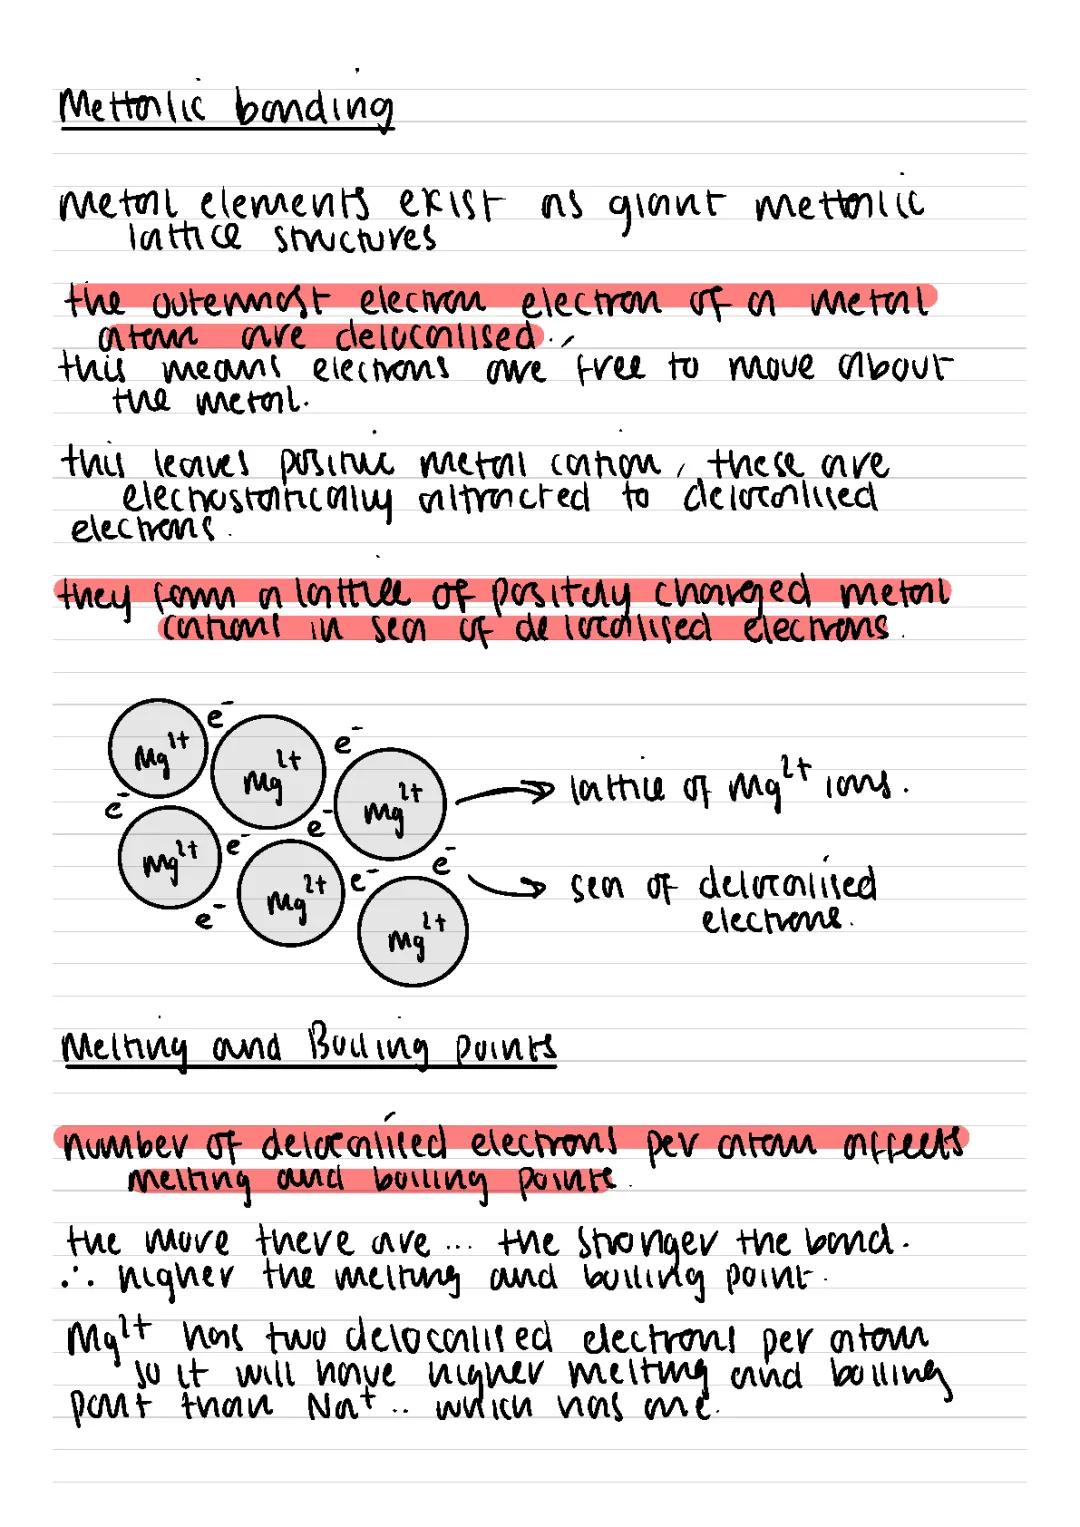 Mettalic bonding
metal elements exist as giant mettalic
lattice structures
the outermost electron electron of a metal
atom are delocalised.
this means electrons are free to move about
the metal.
this leaves positive metal cation, these are
electrostatically attracted to delocalised
electrons.
they form a lattice of positely charged metal
cations in sea of delocalised electrons.
Mg²⁺ e⁻ Mg²⁺ e⁻ Mg²⁺ → lattice of Mg²⁺ ions.
e⁻ Mg²⁺ e⁻ e⁻ Mg²⁺ e⁻ e⁻ → sea of delocalised
e⁻ Mg²⁺ electrons.
Melting and Boiling points
number of delocalised electrons per atom affects
melting and boiling points.
the more there are ... the stronger the bond.
∴ higher the melting and boiling point.
Mg²⁺ has two delocalised electrons per atom
so it will have higher melting and boiling
point than Na⁺ .. which has one.